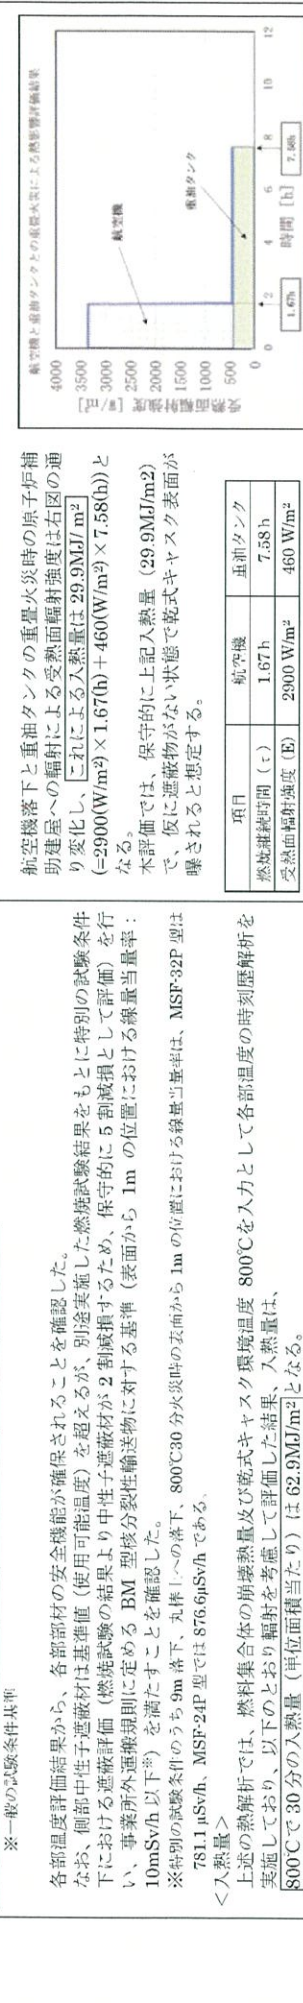 ※一般の試験条件基準
各部温度評価結果から、各部部材の安全機能が確保されることを確認した。
なお、側部中性子遮蔽材は基準値（使用可能温度）を超えるが、別途実施した燃焼試験結果をもとに特別の試験条件
下における遮蔽評価（燃焼試験の結果より中性子遮蔽材が 2 割減損するため、保守的に 5 割減損として評価）を行
い、事業所外運搬規則に定める BM 型核分裂性輸送物に対する基準（表面から 1m の位置における線量当量率：
10mSv/h 以下※）を満たすことを確認した。
※特別の試験条件のうち 9m 落下、丸棒上への落下、800℃30 分火災時の表面から 1m の位置における線量当量率は、MSF-32P 型は
781.1 μSv/h、MSF-24P 型では 876.6μSv/h である。
＜入熱量＞
上述の熱解析では、燃料集合体の崩壊熱量及び乾式キャスク環境温度 800℃を入力として各部温度の時刻歴解析を
実施しており、以下のとおり輻射を考慮して評価した結果、入熱量は、
800℃で 30 分の入熱量（単位面積当たり）は 62.9MJ/m²となる。
航空機落下と重油タンクの重畳火災時の原子炉補
助建屋への輻射による受熱面輻射強度は右図の通
り変化し、これによる入熱量は 29.9MJ/ m²
(=2900(W/m²)×1.67(h)＋460(W/m²)×7.58(h))と
なる。
本評価では、保守的に上記入熱量（29.9MJ/m2）
で、仮に遮蔽物がない状態で乾式キャスク表面が
曝されると想定する。
項目 航空機 重油タンク
燃焼継続時間（τ） 1.67h 7.58h
受熱面輻射強度（E） 2900 W/m² 460 W/m²
航空機と重油タンクとの重畳火災による熱影響評価結果
受熱面輻射強度 [W/㎡]
4000
3500
3000
2500
2000
1500
1000
500
0
航空機
重油タンク
0 2 4 6 8 10 12
時間 [h]
1.67h
7.58h